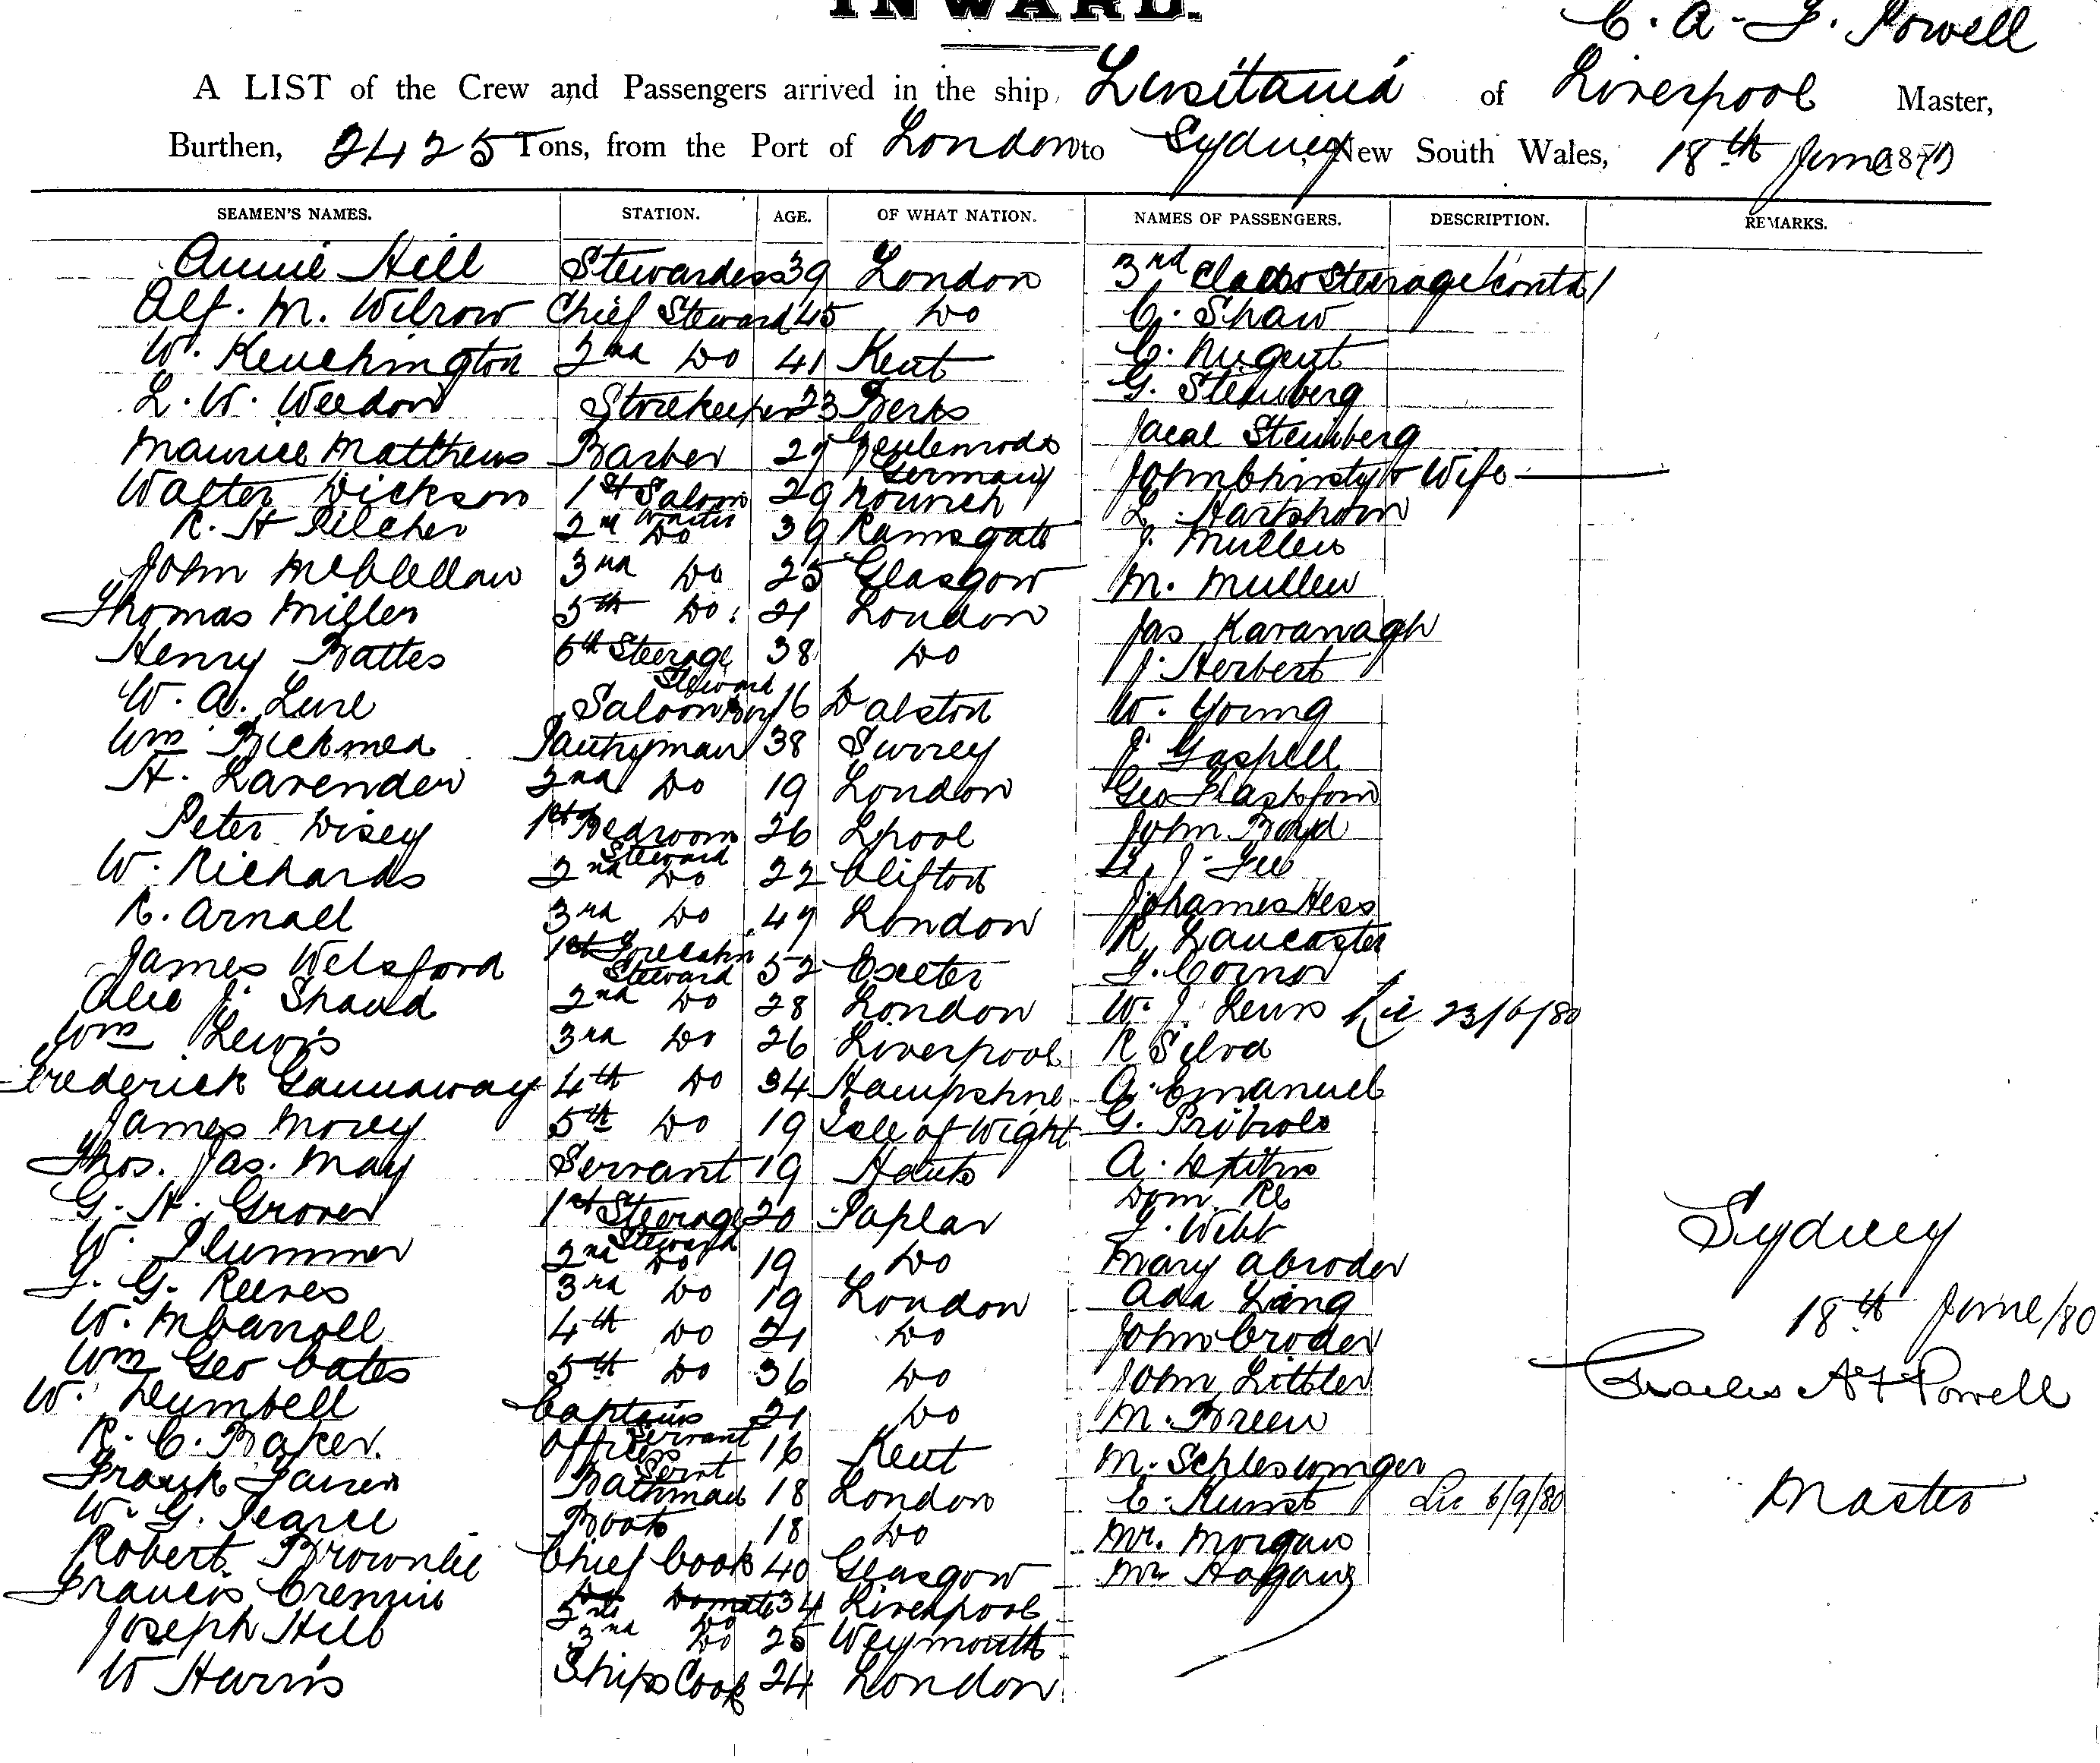 INWARD.
C. A. F. Powell
A LIST of the Crew and Passengers arrived in the ship, Lusitania of Liverpool Master,
Burthen, 2425 Tons, from the Port of London to Sydney, New South Wales, 18th June 1880
SEAMEN'S NAMES. STATION. AGE. OF WHAT NATION. NAMES OF PASSENGERS. DESCRIPTION. REMARKS.
Annie Hill Stewardess 39 London 3rd Class Steerage contd
Alf. M. Wilrow Chief Steward 45 Do C. Shaw
W. Keuchington 2nd Do 41 Kent C. Nugent
L. W. Weedon Storekeeper 23 Berks G. Steinberg
Maurice Matthews Barber 27 Germany Jacal Steinberg
Walter Dickson 1st Saloon Waiter 29 Norwich John Christy & Wife
R. H Pilcher 2nd Do 39 Ramsgate L. Hartshorn
John McClellan 3rd Do 25 Glasgow J. Mullen
Thomas Miller 5th Do. 21 London M. Mullen
Henry Battes 6th Steerage Steward 38 Do Jas Kavanagh
W. A. Lusl Saloon Boy 16 Dalston J. Herbert
Wm Pantryman 38 Surrey W. Young
H. Lavender 2nd Do 19 London J. Gaspell
Peter Disey 1st Bedroom Steward 26 Lpool Geo
W. Richards 2nd Do 22 Clifton John Boyd
R. Arnall 3rd Do 47 London J. Gee
James Welsford 1st Forecabin Steward 52 Exeter Johannes Hess
Alec J. Shand 2nd Do 28 London R. Lancaster
Wm Lewis 3rd Do 26 Liverpool Connor
Frederick Gannaway 4th Do 34 Hampshire W. J. Lewis Lic 23/6/80
James Morey 5th Do 19 Isle of Wight R Silva
Thos. Jas. May Servant 19 Hants A. Emanuel
G. H. Grover 1st Steerage Steward 20 Poplar G.
W. Plummer 2nd Do 19 Do A.
F. G. Reeves 3rd Do 19 London Dom.
W. McCarroll 4th Do 21 Do Webb
Wm Geo Cates 5th Do 36 Do Mary Croder
W. Dumbell Captains Servant 21 Do Ada Lang
R. C. Baker. Officers Servt 16 Kent John Croder
Frank Bathman 18 London John Littler
W. G. Pearce Boots 18 Do M. Breen
Robert Brownlie Chief Cook 40 Glasgow M. Schleswinger
Francis Crennin 2nd Do 34 Liverpool E. Kunst Lic 6/9/80
Joseph Hill 3rd Do 25 Weymouth Mr. Morgan
W Harris Ships Cook 24 London Mr Hogan
Sydney
18th June/80
Charles A F Powell
Master